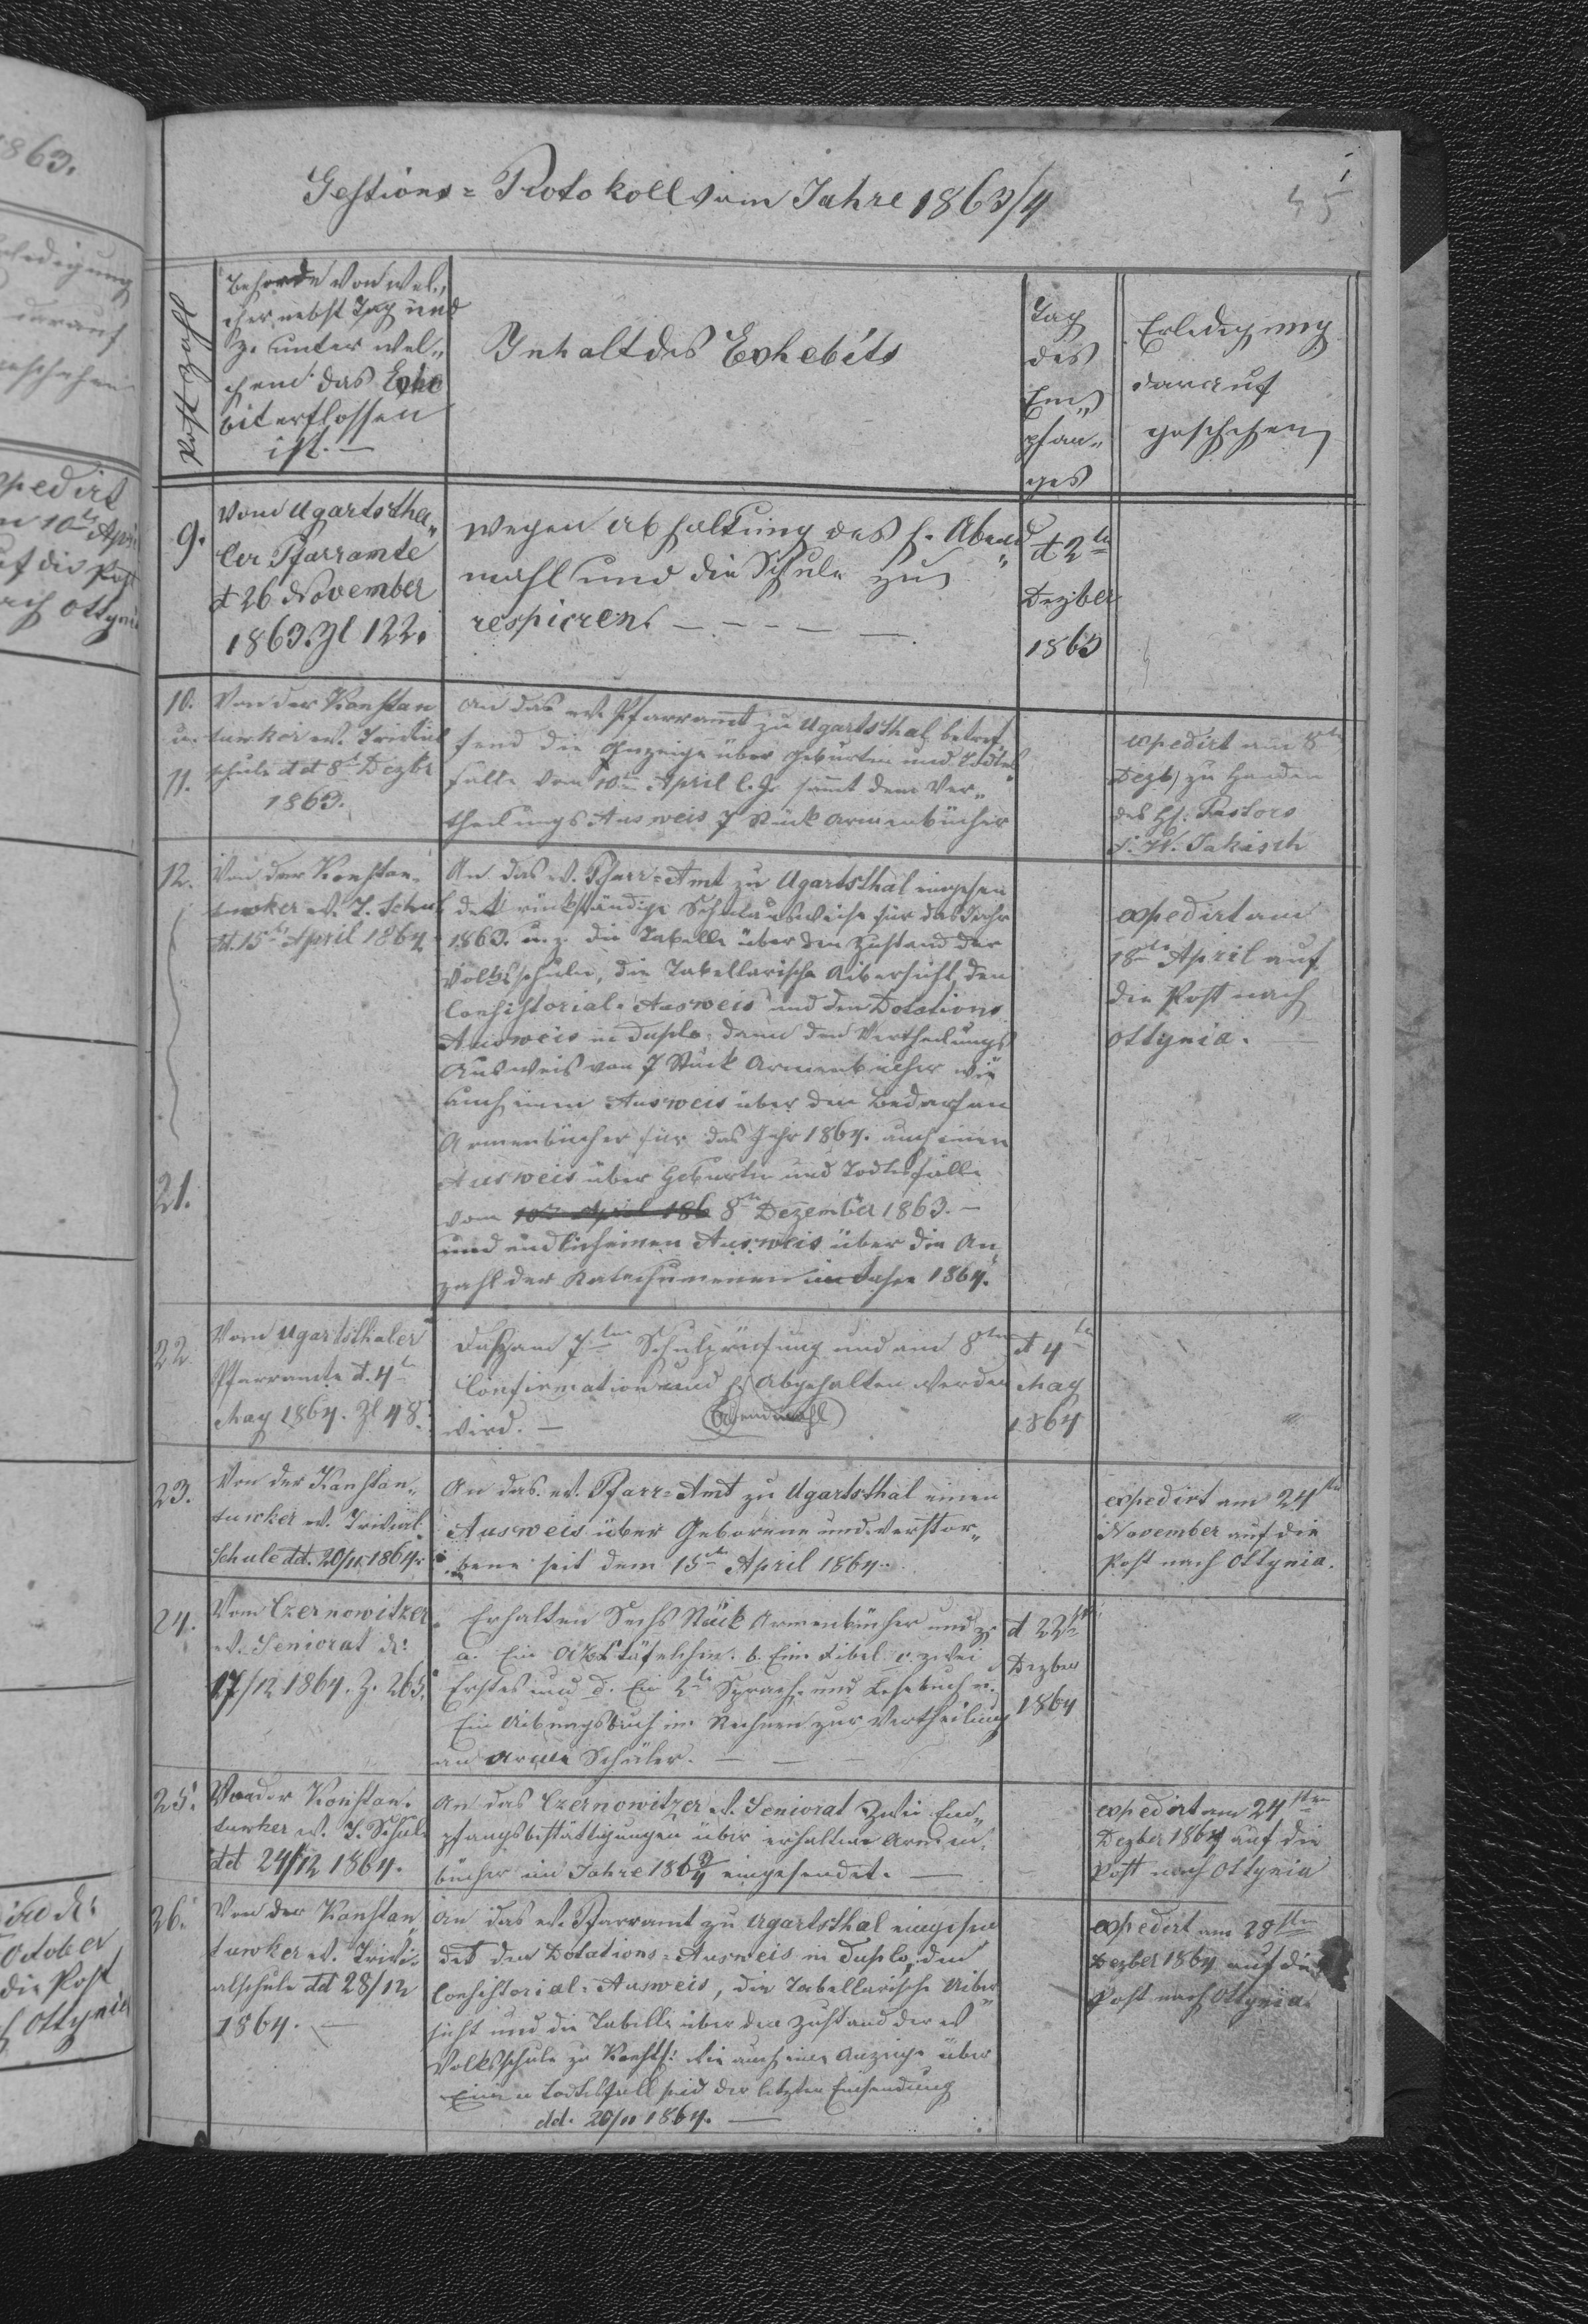 1863.
Erledigung
darauf
geschehen
expedirt
10ten April
auf die Post
nach Ottynia
October
die Post
Ottynia
Gestions=Protokoll vom Jahre 1863/4
45
Post Zahl
Behorde von wel„
cher nebst Tag und
Z. unter wel„
chem das Exhe
bit erflossen
ist. —
Inhalt des Exhebits
Tag
des
Em„
pfan„
ges
Erledigung
darauf
geschehen
9.
Vom Ugartstha„
ler Pfarramte
d 26 November
1863. Zl 122.
wegen Abhaltung des h. Abend„
mahl und die Schule zu
respiciren. — — — —
d 2te
Dezber
1863
10.
u.
11.
Von der Konstan
tuwker ev. Trivial
schule dd 8t Dezbr
1863.
An das ev. Pfarramt zu Ugartsthal betref
fend die Anzeige über Geburten und Todtes„
fälle vom 10ten April l. J. sammt dem Ver„
theilungs Ausweis 7 Stück Armenbücher
expedirt am 8ten
Dezb, zu Handen
des H: Pastors
12.
Von der Konstan„
tuwker ev. T. Schul
dd. 15t April 1864
An das ev. Pfarr=Amt zu Ugartsthal eingesen
det rückständige Schulausweise für das Jahr
1863. u. z. die Tabelle über den Zustand der
Volksschule, die Tabellarische Uibersicht, den
Consistorial=Ausweis und den Dotations
Ausweis in duplo. dann den Vertheilungs
Ausweis von 7 Stück Armenbücher wie
auch einen Ausweis über den Bedarf an
Armenbücher für das Jahr 1864. auch einen
Ausweis über Geburten und Todtesfälle
vom 10ten April 186 8ten Dezember 1863. —
und endlich einen Ausweis über die An„
zahl der Katechumenen im Jahre 1864.
expedirt am
18ten April auf
die Post nach
Ottynia. —
21.
22
Vom Ugartsthaler
Pfarramte d. 4te
May 1864. Zl 48.
daß am 7ten Schulprüfung und am 8ten
Confirmation und h. Abgehalten werden
Abendmahl
wird. —
d 4te
May
1864
23.
Von der Konstan„
tuwker ev. Trivial
Schule dd. 20/11 1864.
An das ev. Pfarr=Amt zu Ugartsthal einen
Ausweis über Geborene und verstor„
bene seit dem 15ten April 1864.
expedirt am 24ten
November auf die
Post nach Ottynia.
24.
Vom Czernowitzer
ev. Seniorat d:
17/12 1864. Z. 265.
Erhalten Sechs Stück Armenbücher und z.
a. Ein täfelchen. b. Eine Fibel c. zwei
Erstes und d. Ein 2te Sprach- und Lesebuch u.
Ein Uibungsbuch im Rechnen zur Vertheilung
an arme Schüler. — —
d 22te
Dezber
1864
25.
Von der Konstan„
tuwker ev. T. Schule
dd 24/12 1864.
An das Czernowitzer ev. Seniorat zwei Em„
pfangsbestättigungen über erhaltene Armen„
bücher im Jahre 1863/4 eingesendet. —
expedirt am 24sten
Dezber 1864 auf die
Post nach Ottynia
26.
Von der Konstan
tuwker ev. Trivi„
alschule dd 28/12
1864. —
An das ev. Pfarramt zu Ugartsthal eingesen
det den Dotations=Ausweis in duplo, den
Consistorial=Ausweis, die Tabellarische Uiber„
sicht und die Tabelle über den Zustand der ev
Volksschule zu Konst: wie auch eine Anzeige über
Einen Todtesfall seid der letzten Einsendung
dd. 20/11 1864. —
expedirt am 28sten
Dezber 1864 auf die
Post nach Ottynia.